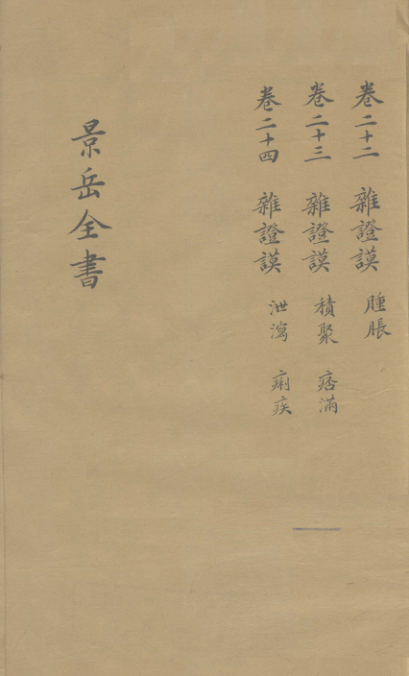 卷二十二 雜證謨 腫脹
卷二十三 雜證謨 積聚 痞滿
卷二十四 雜證謨 泄瀉 痢疾
景岳全書